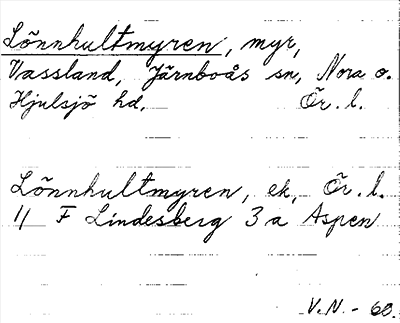 Lönnhultmyren, myr,
Vassland, Järnboås sn, Nora o.
Hjulsjö hd. Ör. l.
Lönnhultmyren, ek, Ör. l.
11 F Lindesberg 3 a Aspen
V.N. - 60.